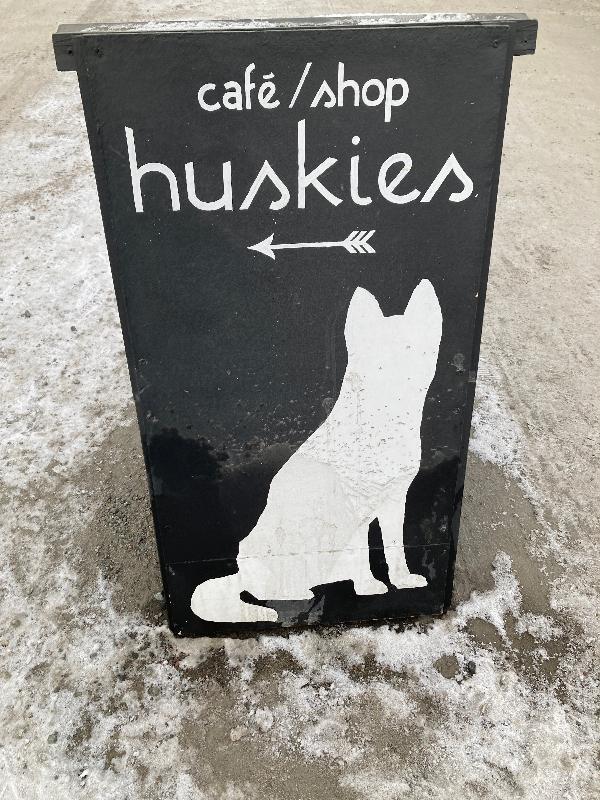 café/shop
huskies